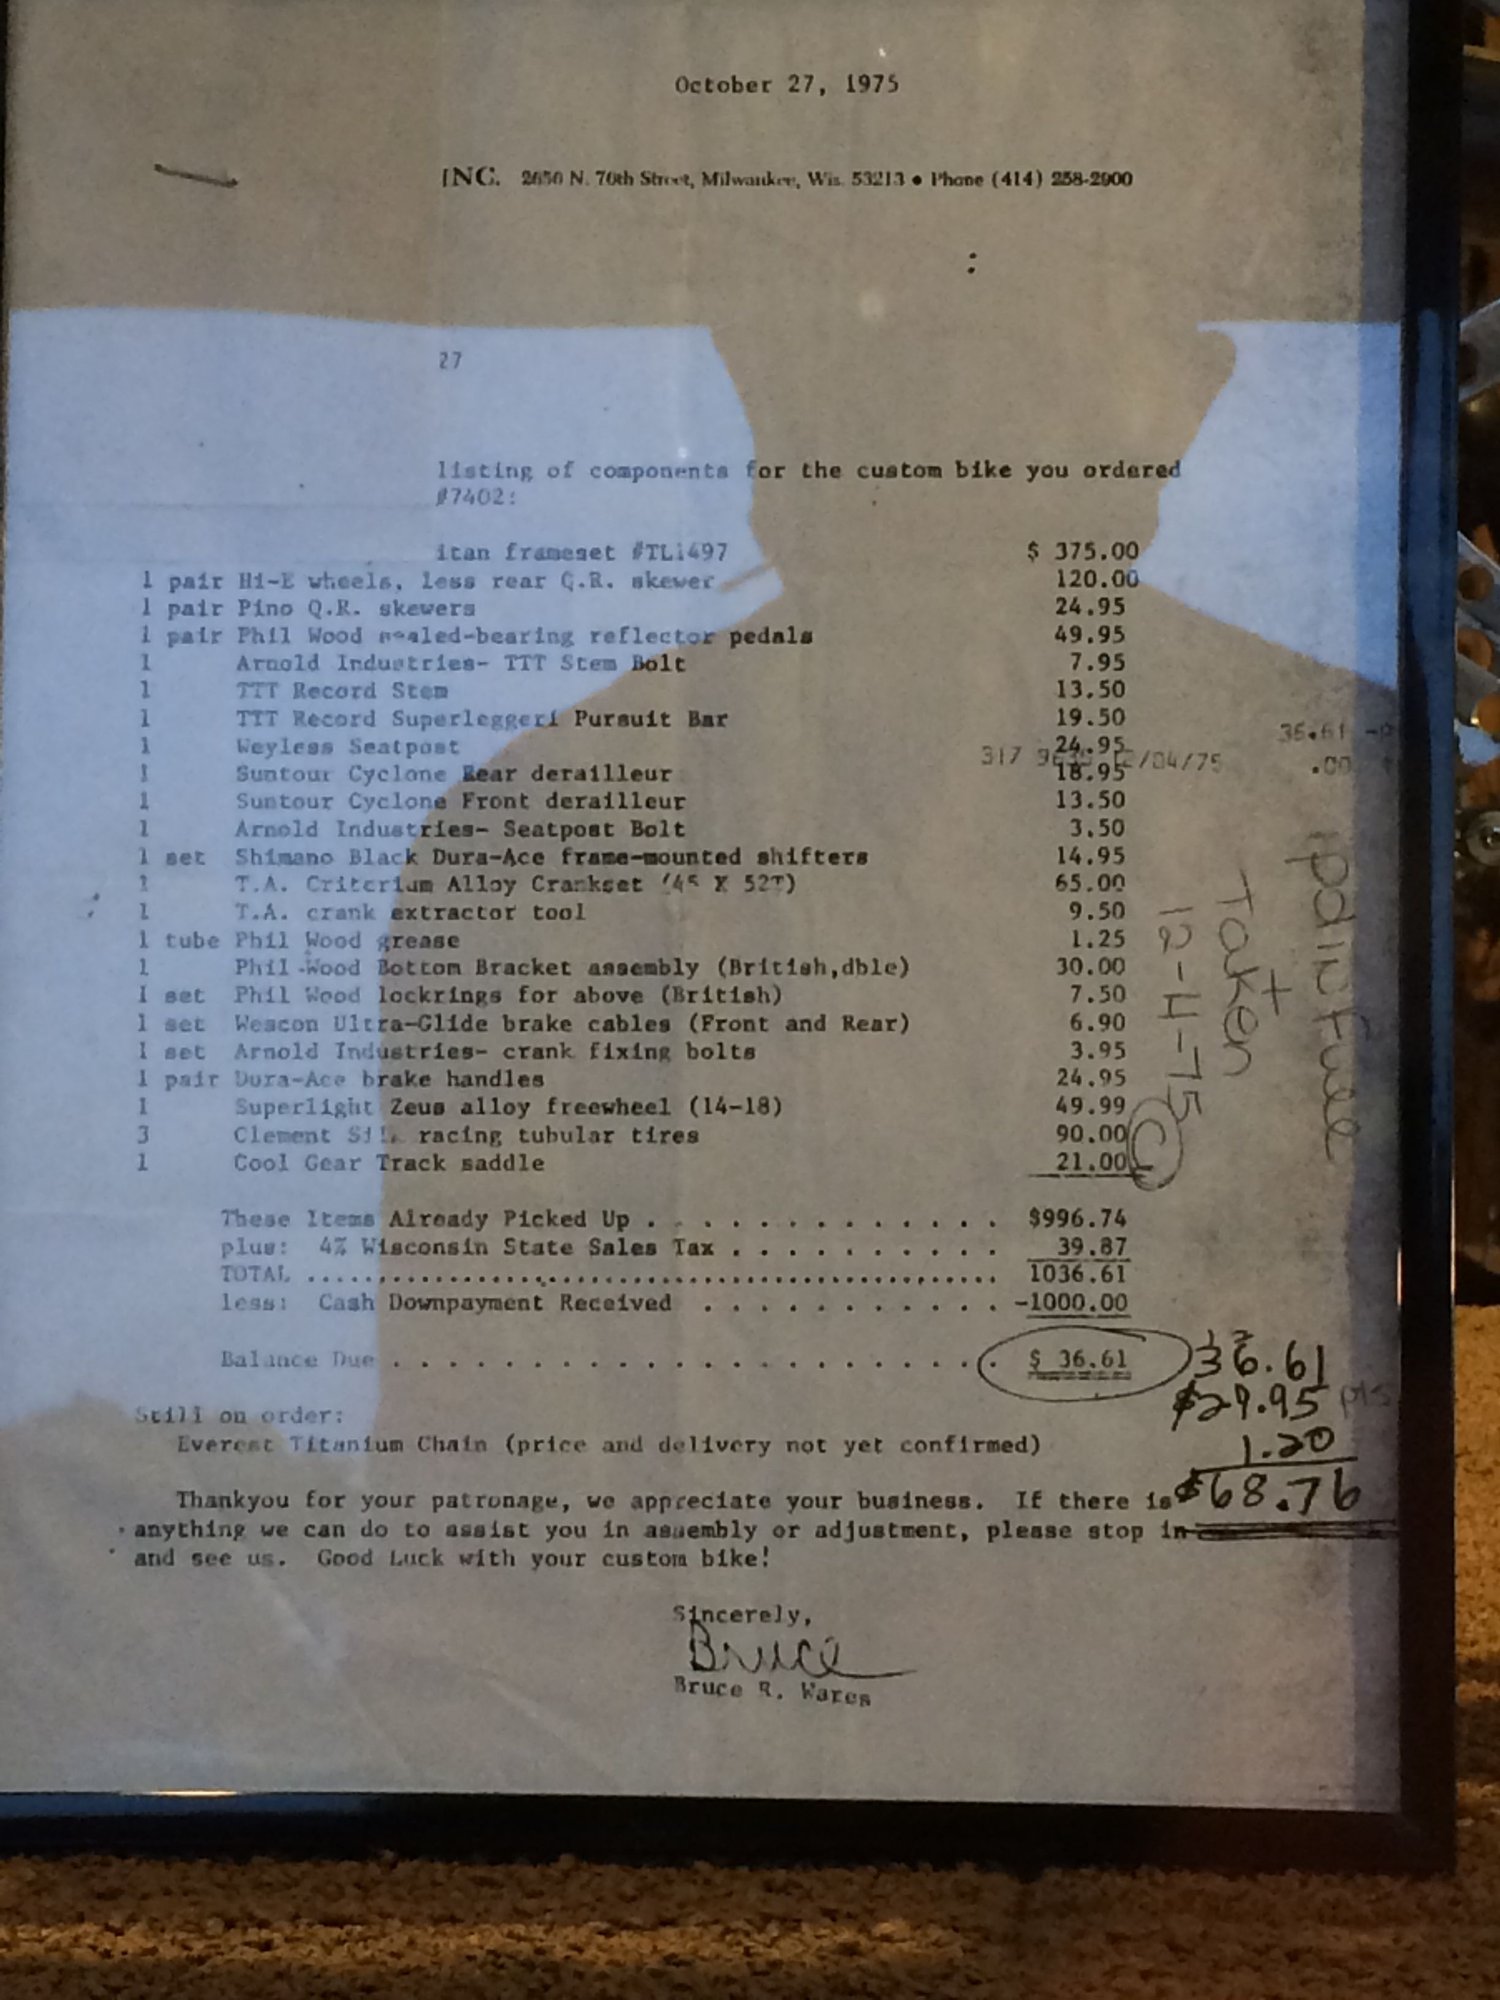 October 27, 1975
INC. 2650 N. 70th Street, Milwaukee, Wis. 53213 • Phone (414) 258-2900
:
27
listing of components for the custom bike you ordered
#7402:
itan frameset #TL1497 $ 375.00
1 pair Hi-E wheels, less rear Q.R. skewer 120.00
1 pair Pino Q.R. skewers 24.95
1 pair Phil Wood sealed-bearing reflector pedals 49.95
1 Arnold Industries- TTT Stem Bolt 7.95
1 TTT Record Stem 13.50
1 TTT Record Superleggeri Pursuit Bar 19.50
1 Weyless Seatpost 24.95
36.61
317 12/04/75 .00
1 Suntour Cyclone Rear derailleur 18.95
1 Suntour Cyclone Front derailleur 13.50
1 Arnold Industries- Seatpost Bolt 3.50
1 set Shimano Black Dura-Ace frame-mounted shifters 14.95
1 T.A. Criterium Alloy Crankset (45 X 52T) 65.00
1 T.A. crank extractor tool 9.50
1 tube Phil Wood grease 1.25
1 Phil Wood Bottom Bracket assembly (British,dble) 30.00
1 set Phil Wood lockrings for above (British) 7.50
1 set Wescon Ultra-Glide brake cables (Front and Rear) 6.90
1 set Arnold Industries- crank fixing bolts 3.95
1 pair Dura-Ace brake handles 24.95
1 Superlight Zeus alloy freewheel (14-18) 49.99
3 Clement Silk racing tubular tires 90.00
1 Cool Gear Track saddle 21.00
pd in full
+
Taken
12-4-75
C
These Items Already Picked Up . . . . . . . . . . . . . $996.74
plus: 4% Wisconsin State Sales Tax . . . . . . . . . . 39.87
TOTAL ................................................. 1036.61
less: Cash Downpayment Received . . . . . . . . . . . -1000.00
Balance Due . . . . . . . . . . . . . . . . . . . . . . $ 36.61
36.61
$29.95 pls
1.20
$68.76
Still on order:
Everest Titanium Chain (price and delivery not yet confirmed)
Thankyou for your patronage, we appreciate your business. If there is
anything we can do to assist you in assembly or adjustment, please stop in
and see us. Good Luck with your custom bike!
Sincerely,
Bruce
Bruce R. Wares